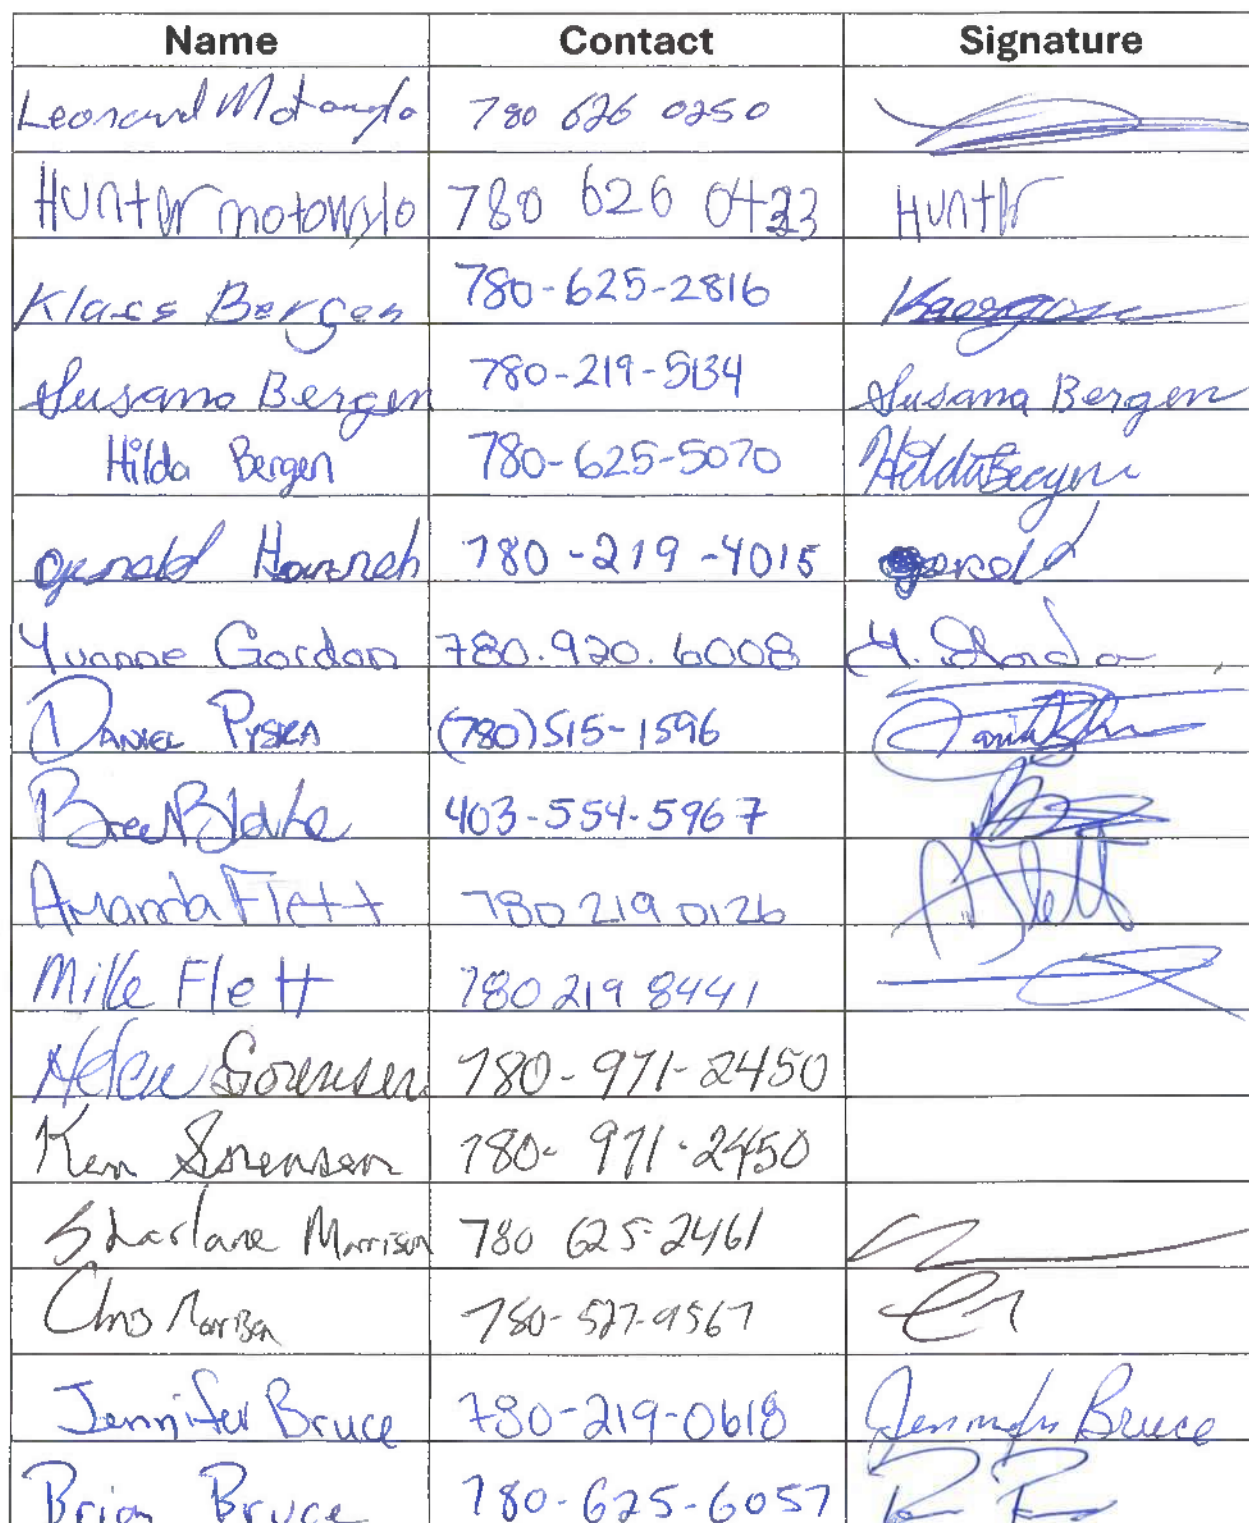 Name Contact Signature
Leonard Motowylo 780 626 0250
Hunter motowylo 780 626 0423 Hunter
Klaas Bergen 780-625-2816
Susana Bergen 780-219-5134 Susana Bergen
Hilda Bergen 780-625-5070 Hilda Bergen
780-219-4015 gerald
Yvonne Gordon 780.920.6008 Y. Gordon
Daniel (780)515-1596
Bree Blake 403-554-5967
Amanda Flett 780 219 0126 A Flett
Mike Flett 780 219 8441
Helen Sorensen 780-971-2450
Ken Sorensen 780-971-2450
Sharlane Morrison 780 625-2461
Chris Morrison 780-527-9567
Jennifer Bruce 780-219-0618 Jennifer Bruce
Brian Bruce 780-625-6057